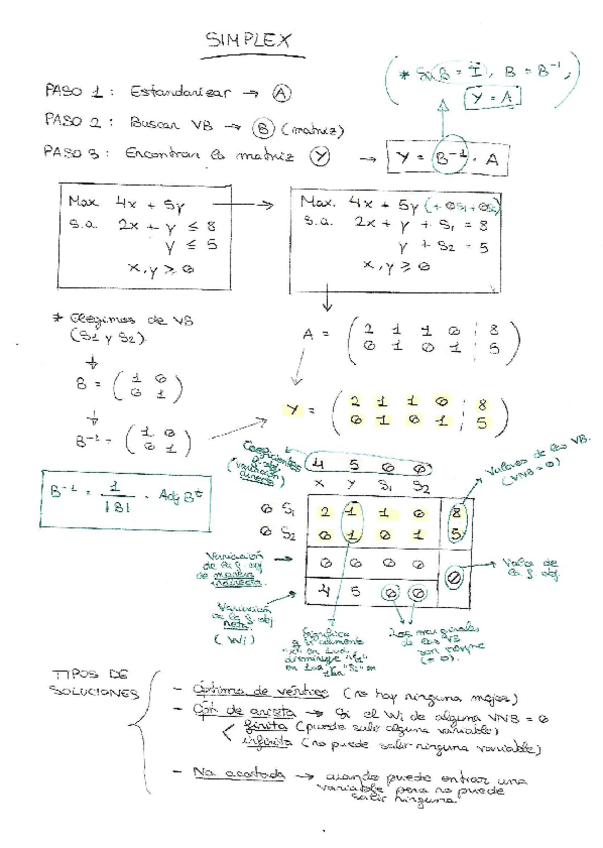 SIMPLEX
PASO 1 : Estandarizar → A
PASO 2 : Buscar VB → B (matriz)
PASO 3 : Encontrar la matriz Y → Y = B⁻¹ · A
(* Si B = I, B = B⁻¹, Y = A)
Max 4x + 5y
s.a. 2x + y ≤ 8
y ≤ 5
x, y ≥ 0
Max. 4x + 5y (+ 0S1 + 0S2)
s.a. 2x + y + S1 = 8
y + S2 = 5
x, y ≥ 0
* Elegimos de VB
(S1 y S2)
B = ( 1 0
0 1 )
B⁻¹ = ( 1 0
0 1 )
A = ( 2 1 1 0 | 8
0 1 0 1 | 5 )
Y = ( 2 1 1 0 | 8
0 1 0 1 | 5 )
B⁻¹ = 1 / |B| · Adj Bᵗ
Coeficientes
f. obj
(variación
directa)
4 5 0 0
x y S1 S2
Valores de las VB.
(VNB = 0)
0 S1 2 1 1 0 8
0 S2 0 1 0 1 5
0 0 0 0 0
4 5 0 0
Variación
de la f obj
de manera
indirecta
Variación
de la f obj
neta
(Wi)
Valor de
la f obj
Los marginales
de las VB
son siempre
(= 0).
TIPOS DE
SOLUCIONES
- Óptima de vértice (no hay ninguna mejor)
- Ópt. de arista → Si el Wi de alguna VNB = 0
finita (puede salir alguna variable)
infinita (no puede salir ninguna variable)
- No acotada → cuando puede entrar una
variable pero no puede
salir ninguna